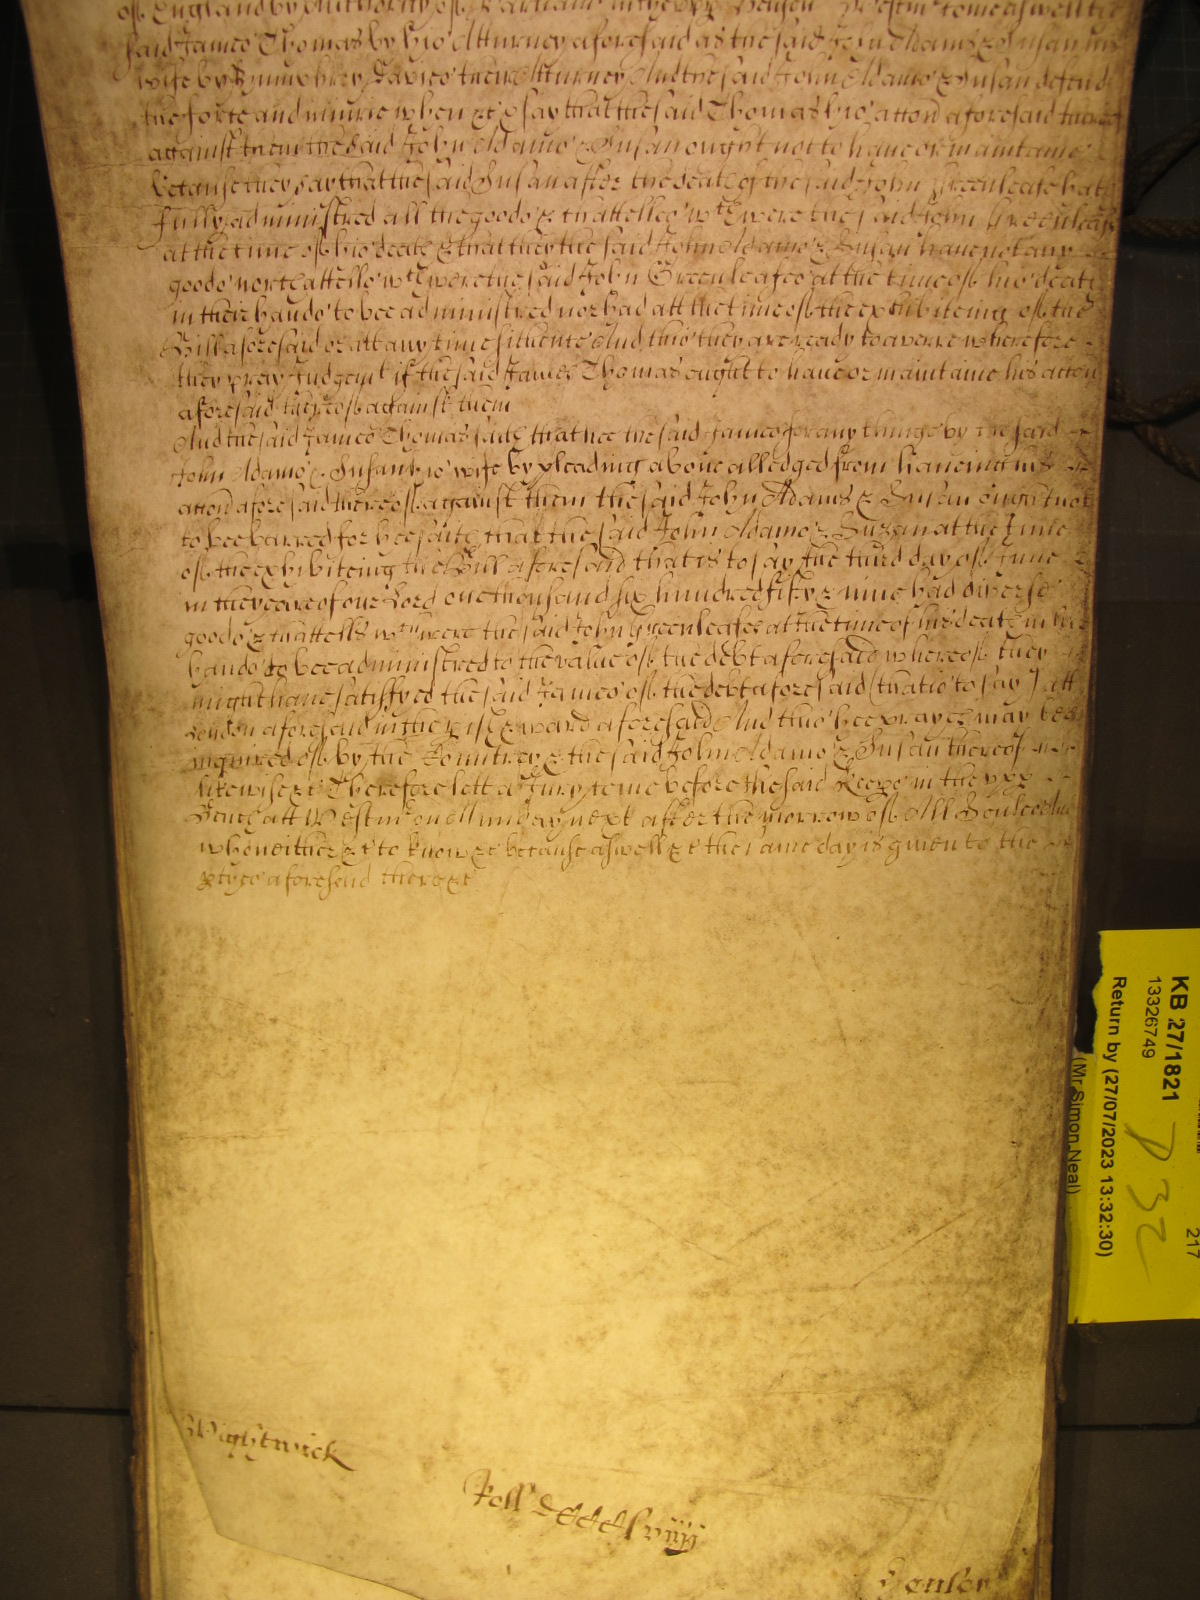 of England by Authority of Parliamt in the upp Bench Westmr come aswell the
said James Thomas by his Atturney aforesaid as the said John Adams & Susan his
wife by Humphrey Davies their Atturney And the said John Adams & Susan defend
the force and iniurie when &c & say that the said Thomas his accon aforesaid thereof
against them the said John Adams & Susan ought not to have or maintaine
because they say that the said Susan after the death of the said John Greenleafe hath
fully administred all the goods & chattelles wch were the said John Greenleafes
at the time of his death & that they the said John Adams & Susan have not any
goods nor chattells wch were the said John Greenleafes at the time of his death
in their hands to bee administred nor had att the time of the exhibiteing of the
Bill aforesaid or att any time sithence And this they are ready to averre wherefore
they pray Judgemt if the said James Thomas ought to have or maintaine his accon
aforesaid thereof against them
And the said James Thomas saith that hee the said James for any thinge by the said
John Adams & Susan his wife by pleading above alledged from haveing his
accon aforesaid thereof against them the said John Adams & Susan ought not
to bee barred for hee saith that the said John Adams & Suzan at the time
of the exhibiteing the Bill aforesaid that is to say the third day of June
in the yeare of our Lord one thousand six hundred fifty & nine had diverse
goods & chattells wch were the said John Greenleafes at the time of his death in their
hands to bee administred to the value of the debt aforesaid whereof they
might have satisfyed the said James of the debt aforesaid (that is to say) att
London aforesaid in the pish & ward aforesaid And this hee prayeth may bee
inquired of by the Countrey & the said John Adams & Susan thereof
likewise &c Therefore lett a Jury come before the said Keeps in the upp
Bench att Westmr on Munday next after the morrow of All Soules And
who neither &c to know &c because aswell &c the same day is given to the
ptyes aforesaid there &c
Wightwick
Roll CCCClviiij
KB 27/1821
13326749
Return by (27/07/2023 13:32:30)
(Mr Simon Neal)
217
D32